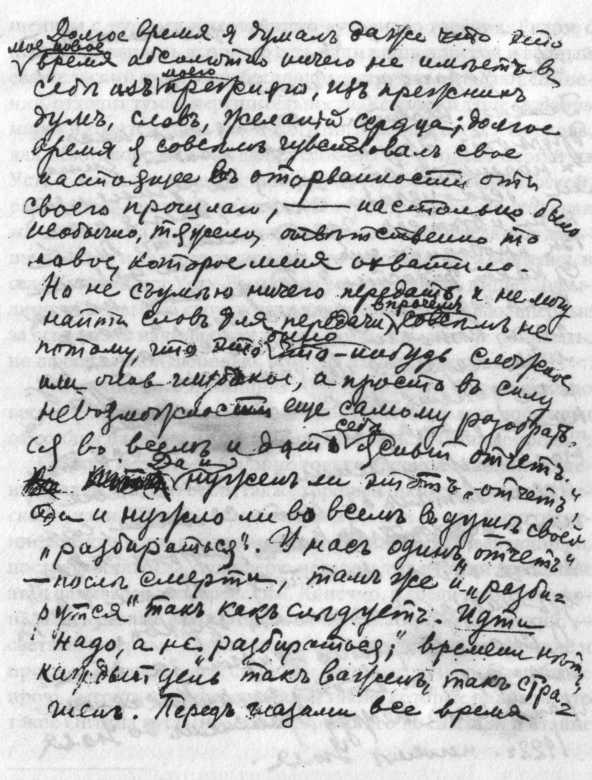 Долгое время я думалъ даже что это
мое новое
время абсолютно ничего не имѣетъ въ
моего
себѣ изъ прежняго, изъ прежнихъ
думъ, словъ, желаній сердца; долгое
время я совсѣмъ чувствовалъ свое
настоящее въ оторванности отъ
своего прошлаго, — настолько было
необычно, тяжело, отвѣтственно то
новое, которое меня охватило.
Но не съумѣю ничего передать и не могу
впрочемъ
найти словъ для передачи совсѣмъ не
было
потому, что это что-нибудь сложное
или очень а просто въ силу
невозможности еще самому разобрать-
себѣ
ся во всемъ и дать ясный отчетъ.
Да и
нуженъ ли этотъ „отчетъ“
Да и нужно ли во всемъ въ душѣ своей
„разбираться“. У насъ одинъ „отчетъ“
— послѣ смерти, тамъ же и „разбе-
рутся“ такъ какъ слѣдуетъ. Идти
надо, а не „разбираться“; времени нѣтъ,
каждый день такъ важенъ, такъ стра-
шенъ. Передъ глазами все время